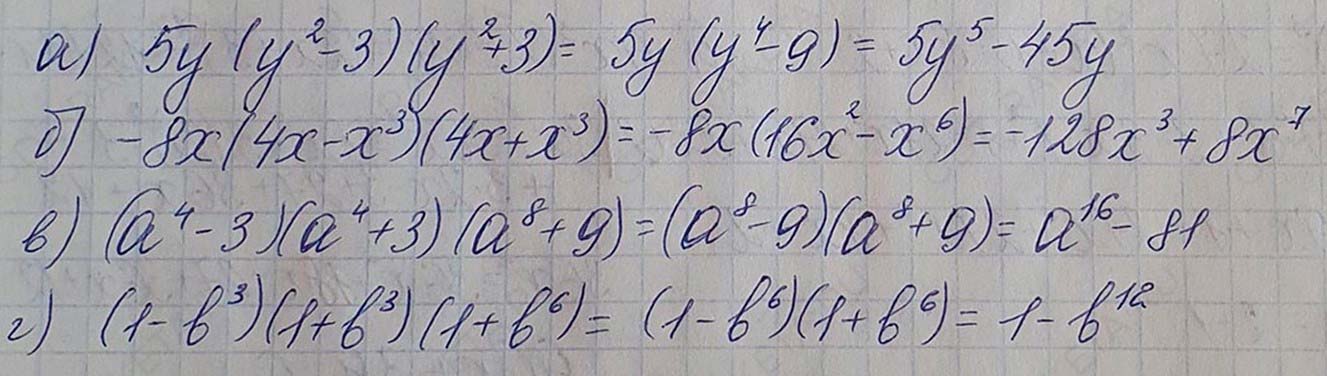 а) 5y (y²-3)(y²+3) = 5y (y⁴-9) = 5y⁵ - 45y
б) -8x(4x-x³)(4x+x³) = -8x(16x²-x⁶) = -128x³ + 8x⁷
в) (a⁴-3)(a⁴+3)(a⁸+9) = (a⁸-9)(a⁸+9) = a¹⁶ - 81
г) (1-b³)(1+b³)(1+b⁶) = (1-b⁶)(1+b⁶) = 1 - b¹²